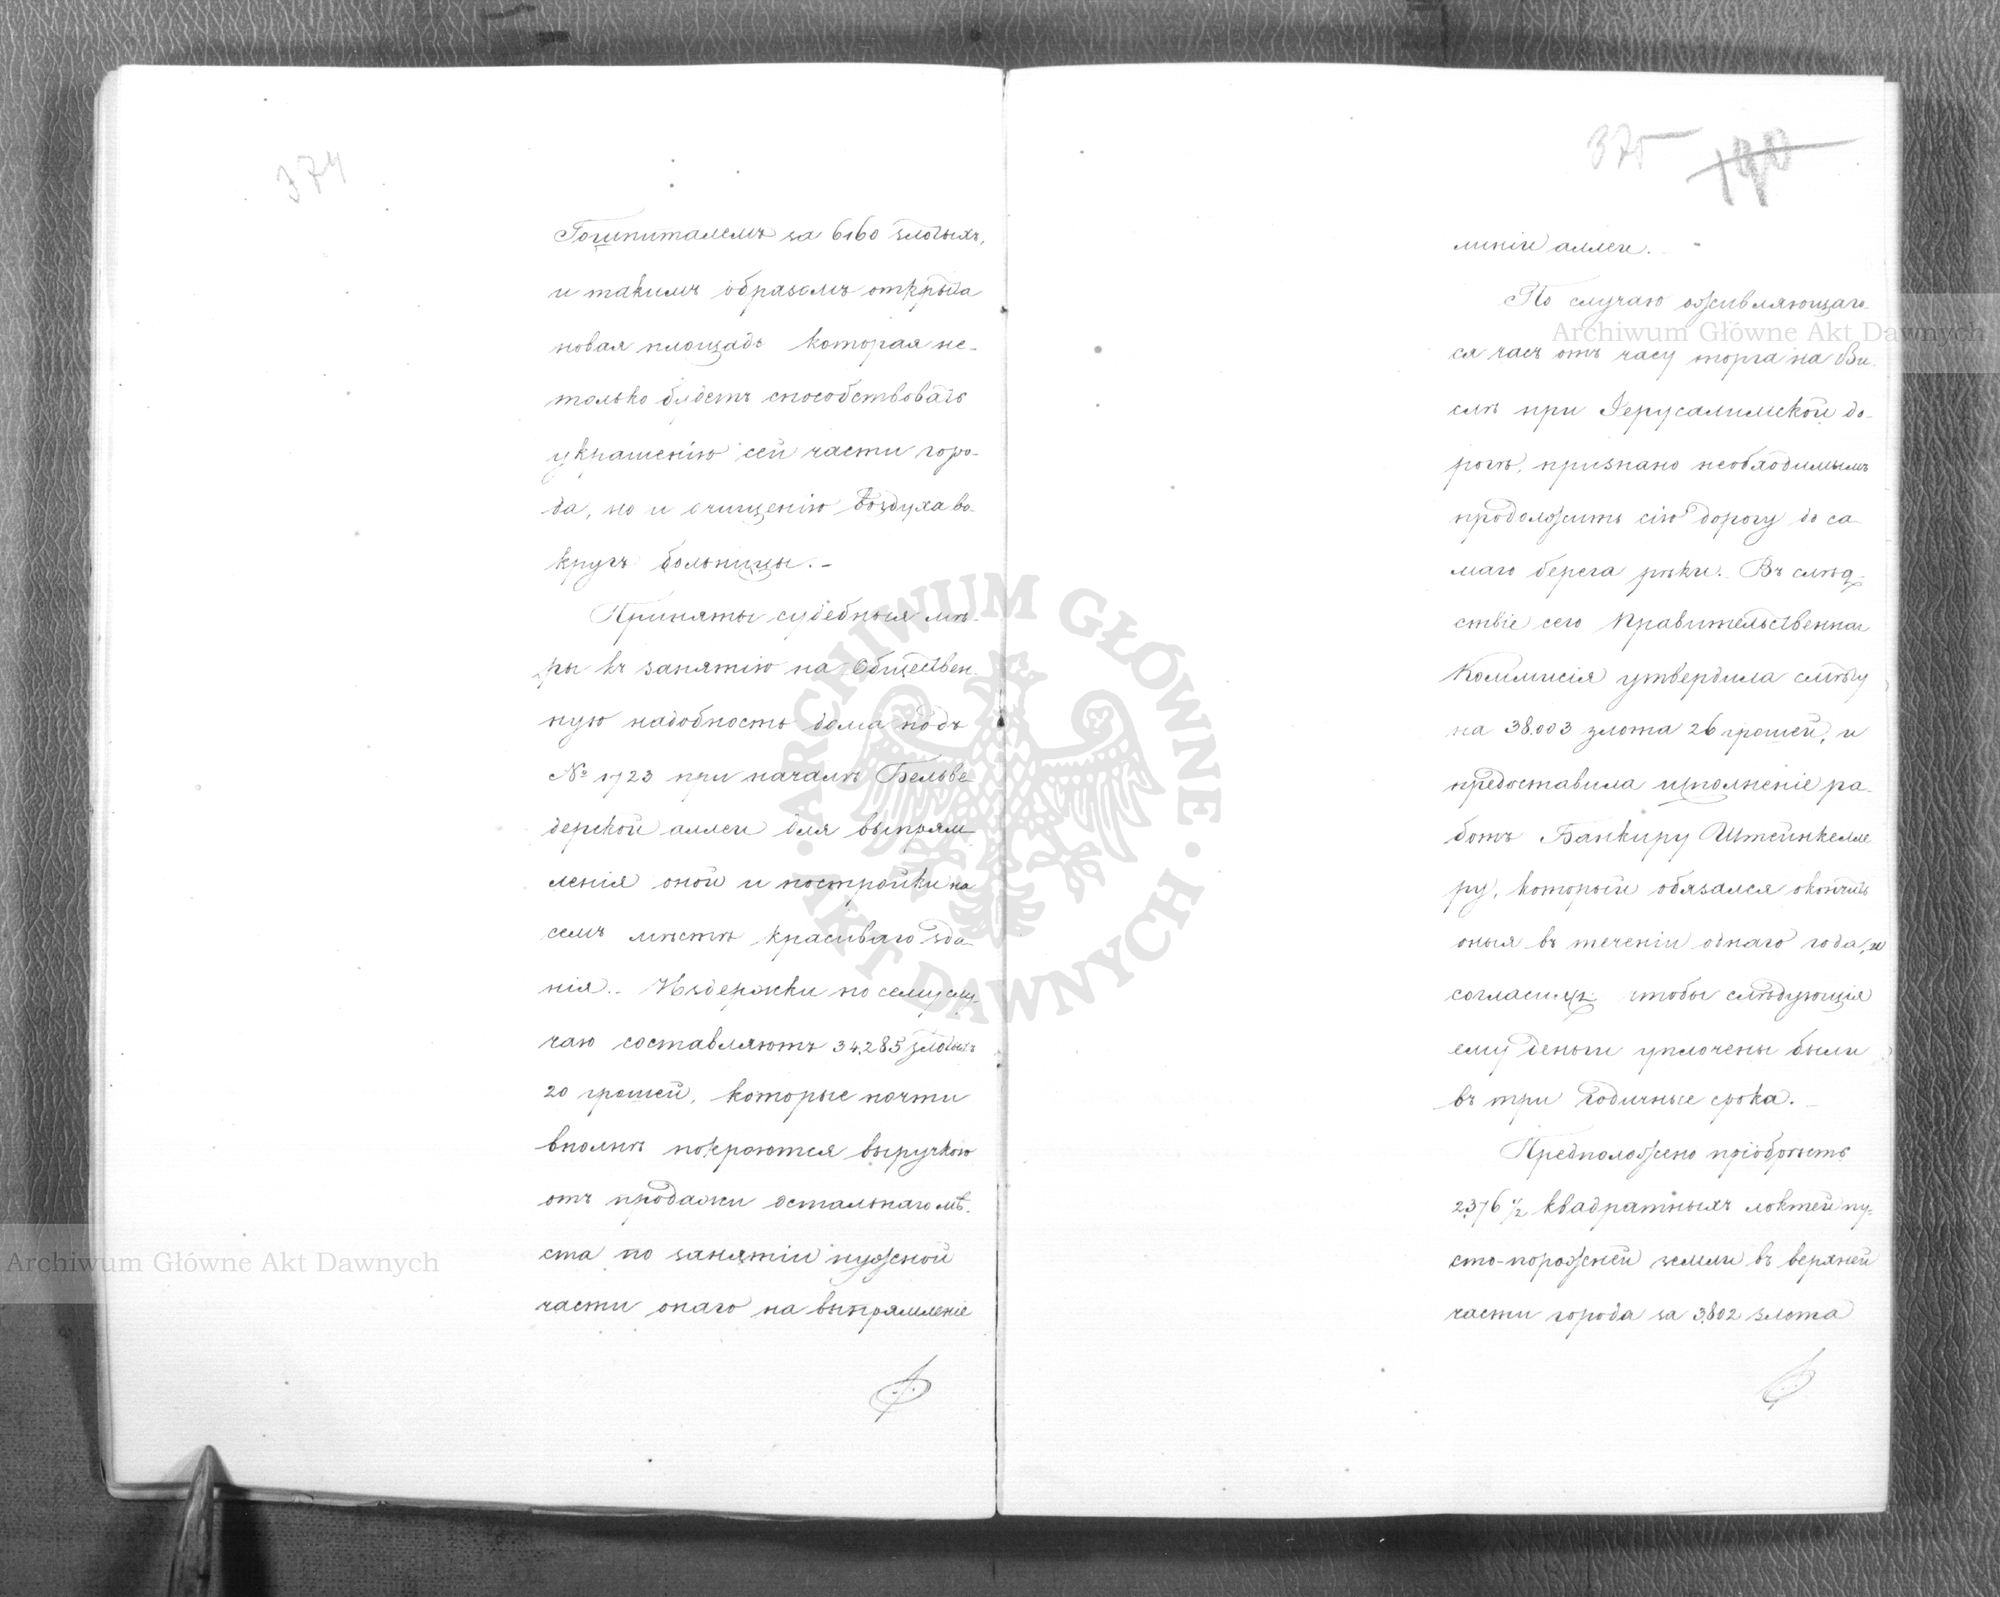 374
Гошпиталемъ за 6160 злотыхъ,
и такимъ образомъ открыта
новая площадь которая не-
только будетъ способствовать
украшенію сей части горо-
да, но и очищенію воздуха во-
кругъ больницы. –
Приняты судебныя мѣ-
ры къ занятію на Обществен-
ную надобность дома подъ
№ 1723 при началѣ Бельве-
дерской аллеи для выпрям-
ленія оной и постройки на
семъ мѣстѣ красиваго зда-
нія. – Издержки по сему слу-
чаю составляютъ 34,285 злотыхъ
20 грошей, которые почти
вполнѣ покроются выручкою
отъ продажи остальнаго мѣ-
ста по занятіи нужной
части онаго на выпрямленіе
375 190
линіи аллеи. –
По случаю оживляющаго-
ся часъ отъ часу торга на Ви-
слѣ при Іерусалимской до-
рогѣ, признано необходимымъ
продолжить сію дорогу до са-
маго берега рѣки. Въ слѣд-
ствіе сего Правительственная
Коммисія утвердила смѣту
на 38.003 злота 26 грошей, и
предоставила исполненіе ра-
ботъ Банкиру Штейнкелле-
ру, который обязался окончить
оныя въ теченіи однаго года, и
согласился чтобы слѣдующія
ему деньги уплочены были
въ три годичные срока. –
Предположено пріобрѣсть
2,376 1/2 квадратныхъ локтей пу-
сто-порожней земли въ верхней
части города за 3,802 злота
Archiwum Główne Akt Dawnych
Archiwum Główne Akt Dawnych
ARCHIWUM GŁÓWNE · AKT DAWNYCH ·